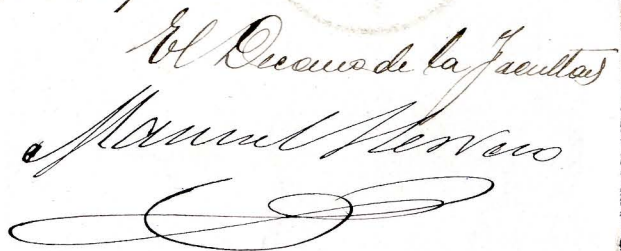 El Decano de la Facultad
Manuel Herrero